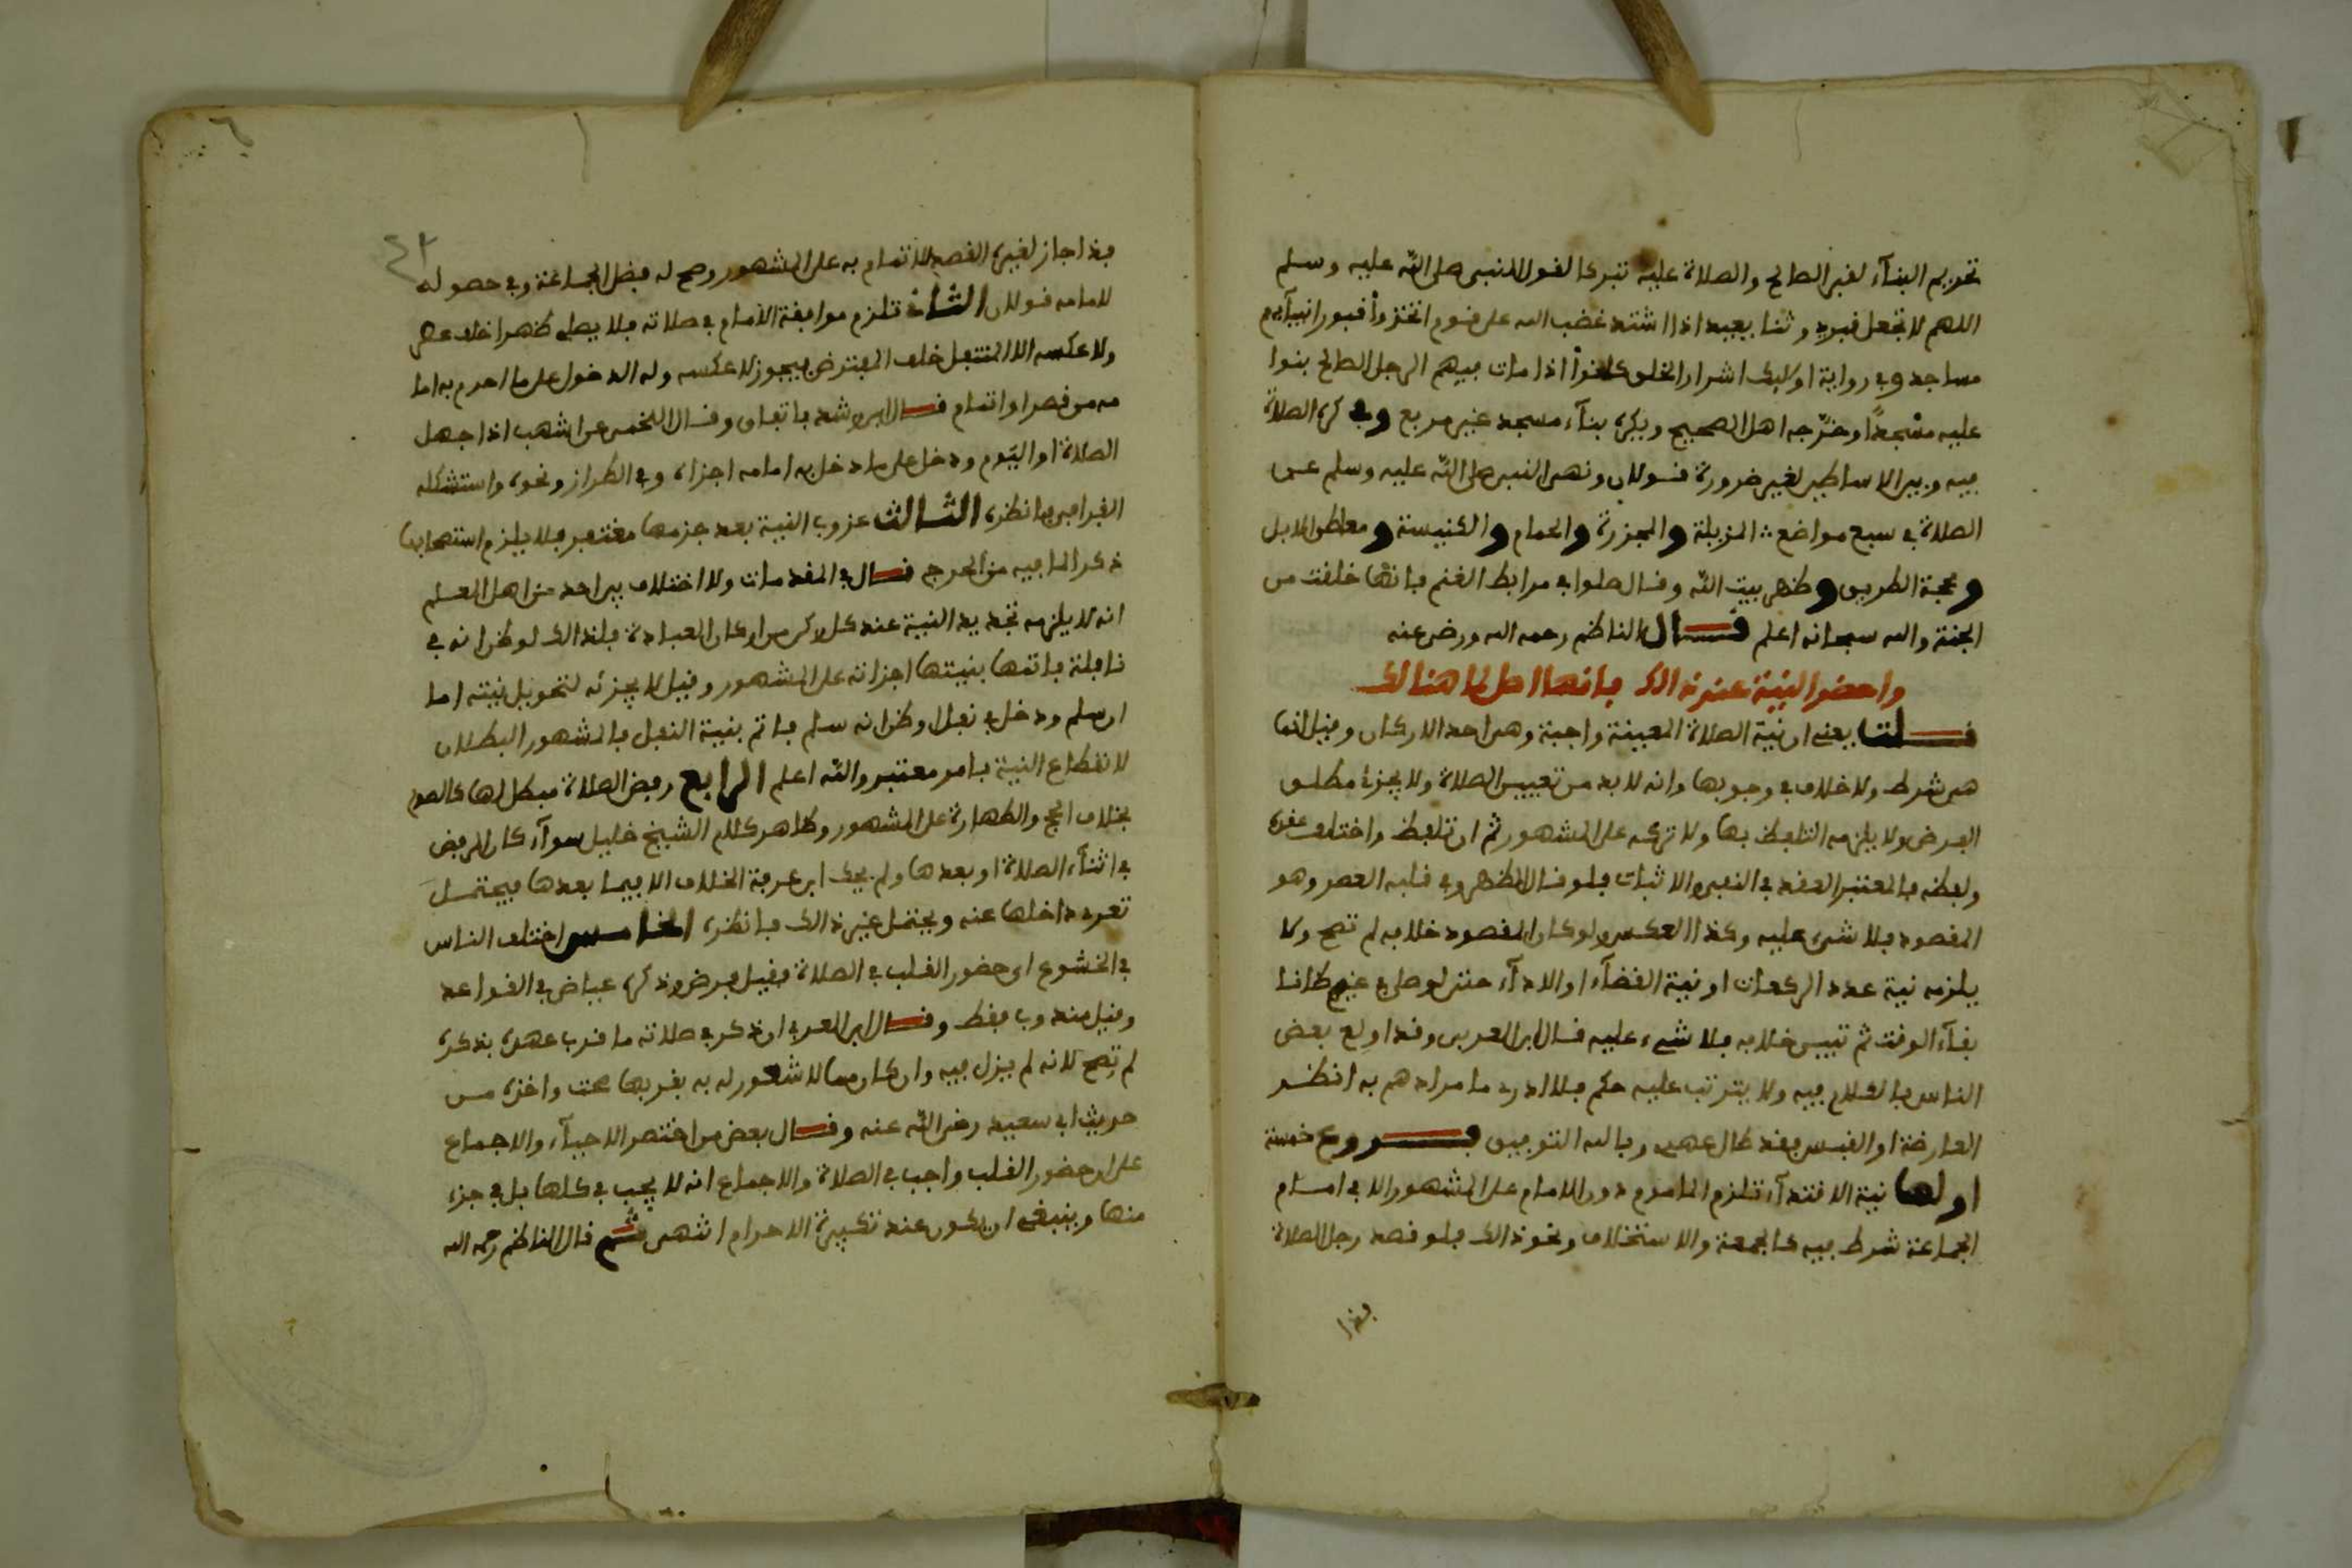 تحريم البنآء لقبر الصالح والصلاة عليه تبركا لقول النبي صلى الله عليه وسلم
اللهم لا تجعل قبري وثنا يعبد اذا اشتد غضب الله على قوم اتخذوا قبور انبيآيهم
مساجد وفي رواية اوليك اشرار الخلق كانوا اذا مات فيهم الرجل الصالح بنوا
عليه مسجدًا وخرّجه اهل الصحيح ويكره بنآء مسجد غير مربع وفي كره الصلاة
فيه وبين الاساطين لغير ضرورة قولان ونهى النبي صلى الله عليه وسلم عن
الصلاة في سبع مواضع المزبلة والمجزرة والحمام والكنيسة ومعاطن الابل
ومحجة الطريق وظهر بيت الله وقال صلوا في مرابط الغنم فانها خلقت من
الجنة والله سبحانه اعلم قال الناظم رحمه الله ورضي عنه
واحضر النية عند ذالك فانها اصل لما هنالك
قلت يعني ان نية الصلاة المعينة واجبة وهي احد الاركان وقيل انها
هي شرط ولا خلاف في وجوبها وانه لا بد من تعيين الصلاة ولا يجزئ مطلق
الفرض ولا يلزمه التلفظ بها ولا تركه على المشهور ثم ان تلفظ واختلف عقده
ولفظه فالمعتبر العقد في النفي والاثبات فلو قال الظهر وفي قلبه العصر وهو
المقصود فلا شيء عليه وكذا العكس ولو كان المقصود خلافه لم تصح ولا
يلزمه نية عدد الركعات او نية القضآء او الادآء حتى لو صلى في غيم ظانا
بقآء الوقت ثم تبين خلافه فلا شيء عليه قال ابن العربي وقد اولع بعض
الناس بالكلام فيه ولا يترتب عليه حكم فلا ادري ما مرادهم به انظر
العارضة او القبس فقد طال عهدي وبالله التوفيق فروع خمسة
اولها نية الاقتدآء تلزم الماموم دون الامام على المشهور الا في امام
الجماعة شرط فيه كالجمعة والاستخلاف ونحو ذالك فلو قصد رجل الصلاة
فذا
فذا جاز لغيره القصد للائتمام به على المشهور وصح له فضل الجماعة وفي حصوله
لامامه قولان الثاني تلزم موافقة الامام في صلاته فلا يصلي ظهرا خلف عصر
ولا عكسه الا المتنفل خلف المفترض فيجوز لا عكسه وله الدخول على ما احرم به اما
مه من قصر او اتمام قال ابن رشد باتفاق وقال اللخمي عن اشهب اذا جهل
الصلاة او اليوم ودخل على ما دخل به امامه اجزاه وفي الطراز ونحوه واستشكله
القرافي فانظره الثالث عزوب النية بعد جزمها مغتفر فلا يلزم استصحابها
ذكرا لما فيه من الحرج قال في المقدمات ولا اختلاف بين احد من اهل العلم
انه لا يلزمه تجديد النية عند كل ركن من اركان العبادة فلذالك لو ظن انه في
نافلة فاتمها بنيتها اجزاته على المشهور وقيل لا يجزئه لتحويل نيته اما
ان سلم ودخل في نفل او ظن انه سلم فاتم بنية النفل فالمشهور البطلان
لانقطاع النية بامر معتبر والله اعلم الرابع رفض الصلاة مبطل لها كالصوم
بخلاف الحج والطهارة على المشهور وظاهر كلام الشيخ خليل سوآء كان الرفض
في اثنآء الصلاة او بعدها ولم يحك ابن عرفة الخلاف الا فيما بعدها فيحتمل
تعدد داخلها عنه ويحتمل غير ذالك فانظره الخامس اختلف الناس
في الخشوع اي حضور القلب في الصلاة فقيل فرض وذكره عياض في القواعد
وقيل مندوب فقط وقال ابن العربي ان ذكر في صلاته ما قرب عهده بذكره
لم تصح لانه لم يزل فيه وان كان مما لا شعور له به بقربها صحت واخذه من
حديث ابي سعيد رضي الله عنه وقال بعض من اختصر الاحيآء والاجماع
على ان حضور القلب واجب في الصلاة والاجماع انه لا يجب في كلها بل في جزء
منها وينبغي ان يكون عند تكبيرة الاحرام انتهى ثم قال الناظم رحمه الله